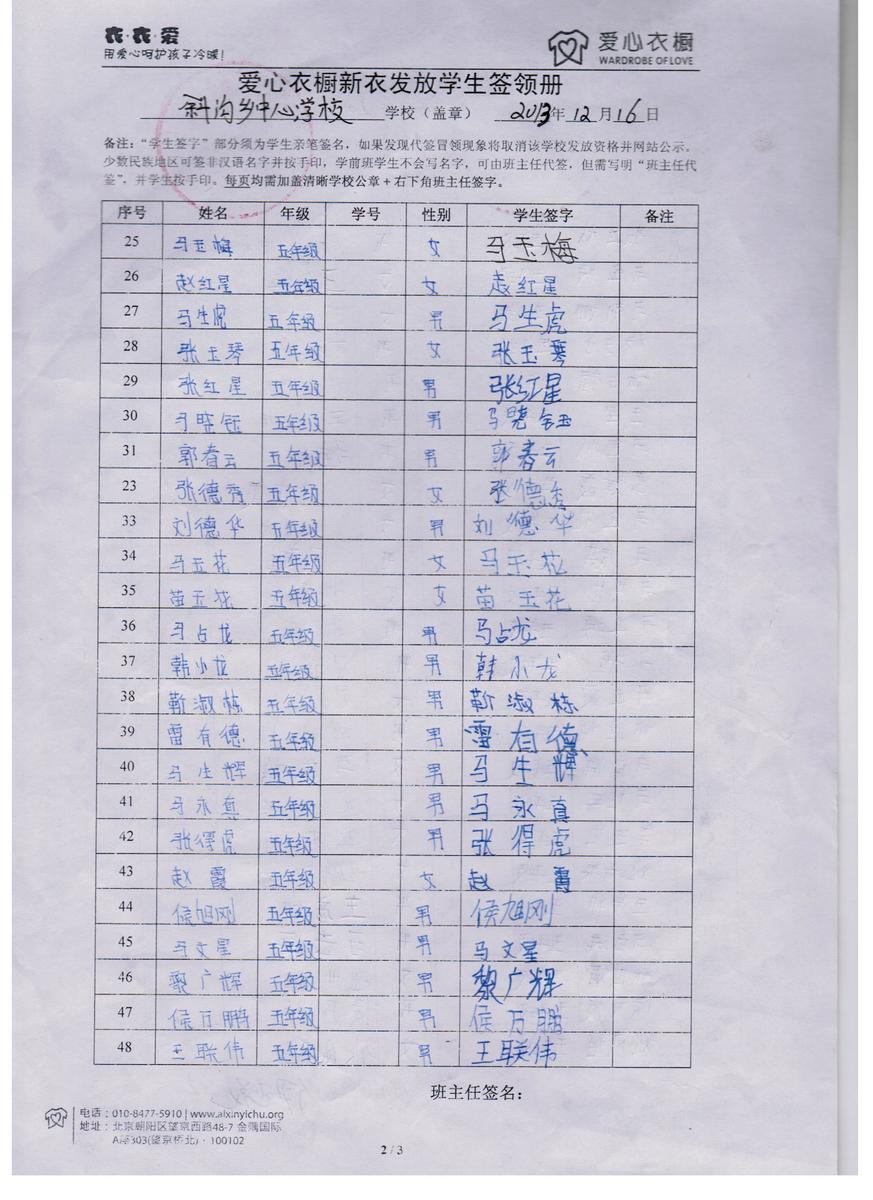 衣·衣·爱
用爱心呵护孩子冷暖!
爱心衣橱
WARDROBE OF LOVE
爱心衣橱新衣发放学生签领册
斜沟乡中心学校 学校（盖章） 2013年12月16日
备注："学生签字"部分须为学生亲笔签名，如果发现代签冒领现象将取消该学校发放资格并网站公示。
少数民族地区可签非汉语名字并按手印，学前班学生不会写名字，可由班主任代签，但需写明"班主任代
签"，并学生按手印。每页均需加盖清晰学校公章+右下角班主任签字。
序号 姓名 年级 学号 性别 学生签字 备注
25 马玉梅 五年级 女 马玉梅
26 赵红星 五年级 女 袁红星
27 马生虎 五年级 男 马生虎
28 张玉琴 五年级 女 张玉琴
29 张红星 五年级 男 张红星
30 马晓钰 五年级 男 马晓钰
31 郭春云 五年级 男 郭春云
23 张德秀 五年级 女 张德秀
33 刘德华 五年级 男 刘德华
34 马玉花 五年级 女 马玉花
35 苗玉花 五年级 女 苗玉花
36 马占龙 五年级 男 马占龙
37 韩小龙 五年级 男 韩小龙
38 靳淑栋 五年级 男 靳淑栋
39 雷有德 五年级 男 雷有德
40 马生辉 五年级 男 马生辉
41 马永真 五年级 男 马永真
42 张得虎 五年级 男 张得虎
43 赵霞 五年级 女 赵霞
44 侯旭刚 五年级 男 侯旭刚
45 马文星 五年级 男 马文星
46 黎广辉 五年级 男 黎广辉
47 侯万鹏 五年级 男 侯万鹏
48 王联伟 五年级 男 王联伟
班主任签名：
电话：010-8477-5910 | www.aixinyichu.org
地址：北京朝阳区望京西路48-7 金隅国际
A座303(望京桥北)·100102
2 / 3